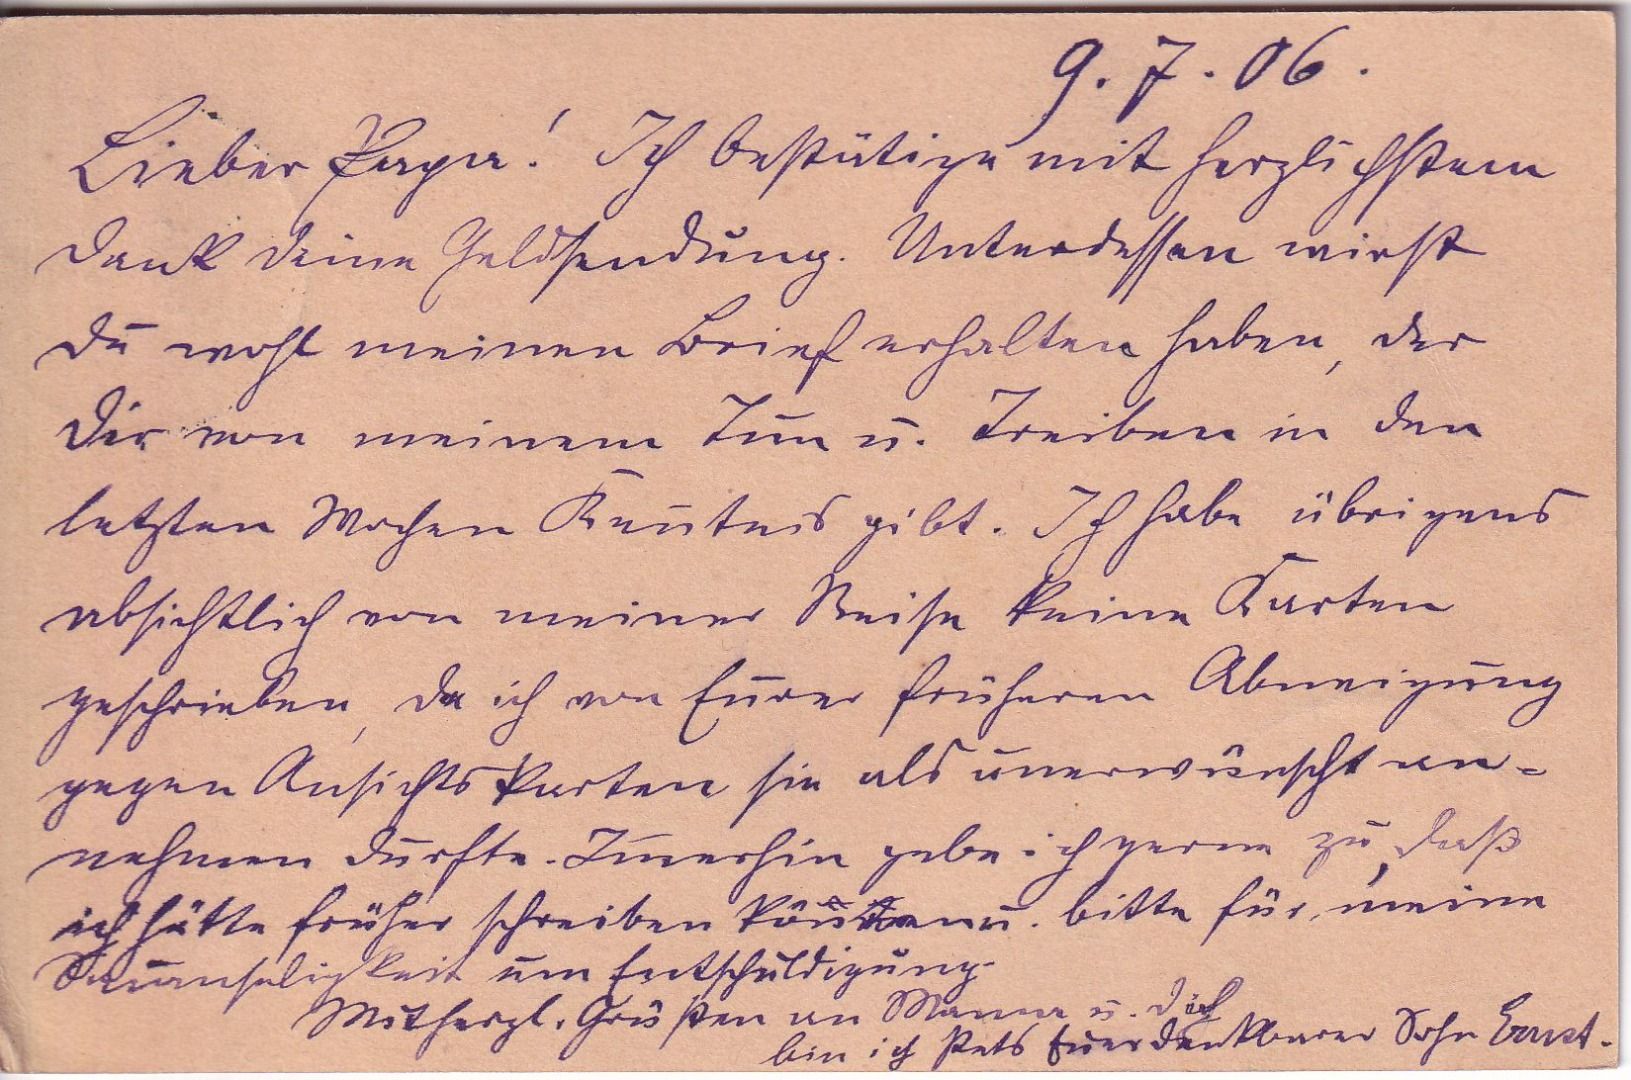 9. 7. 06.
Lieber Papa! Ich bestätige mit herzlichstem
Dank deine Geldsendung. Unterdessen wirst
du wohl meinen Brief erhalten haben, der
Dir von meinem Tun u. Treiben in den
letzten Wochen Kenntnis gibt. Ich habe übrigens
absichtlich von meiner Reise keine Karten
geschrieben, da ich von Eurer früheren Abneigung
gegen Ansichtskarten sie als unerwünscht an-
nehmen durfte. Immerhin gebe ich gerne zu, daß
ich hätte früher schreiben können u. bitte für meine
Saumseligkeit um Entschuldigung.
Mit herzl. Grüßen an Mama u. dich
bin ich stets Euer dankbarer Sohn Ernst.